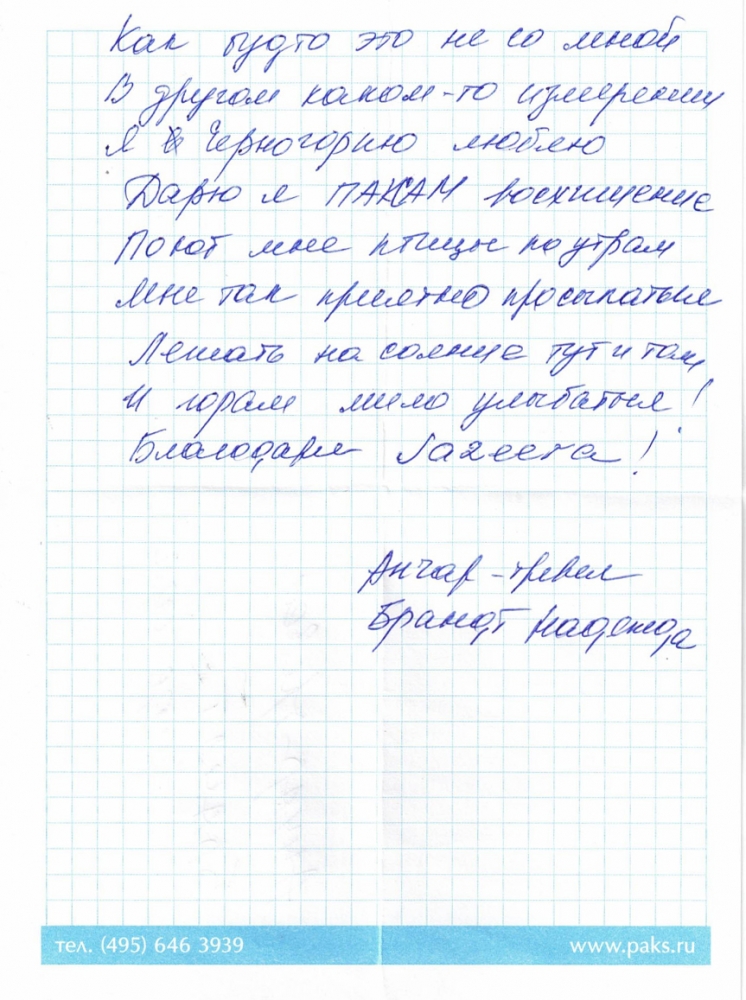 Как будто это не со мной
В другом каком-то измерении
Я Черногорию люблю
Дарю я ПАКАМ восхищение
Поют мне птицы по утрам
Мне так приятно просыпаться
Лежать на солнце тут и там
И горам мило улыбаться!
Благодарю !
Анчар-тревел
Брандт Надежда
тел. (495) 646 3939
www.paks.ru